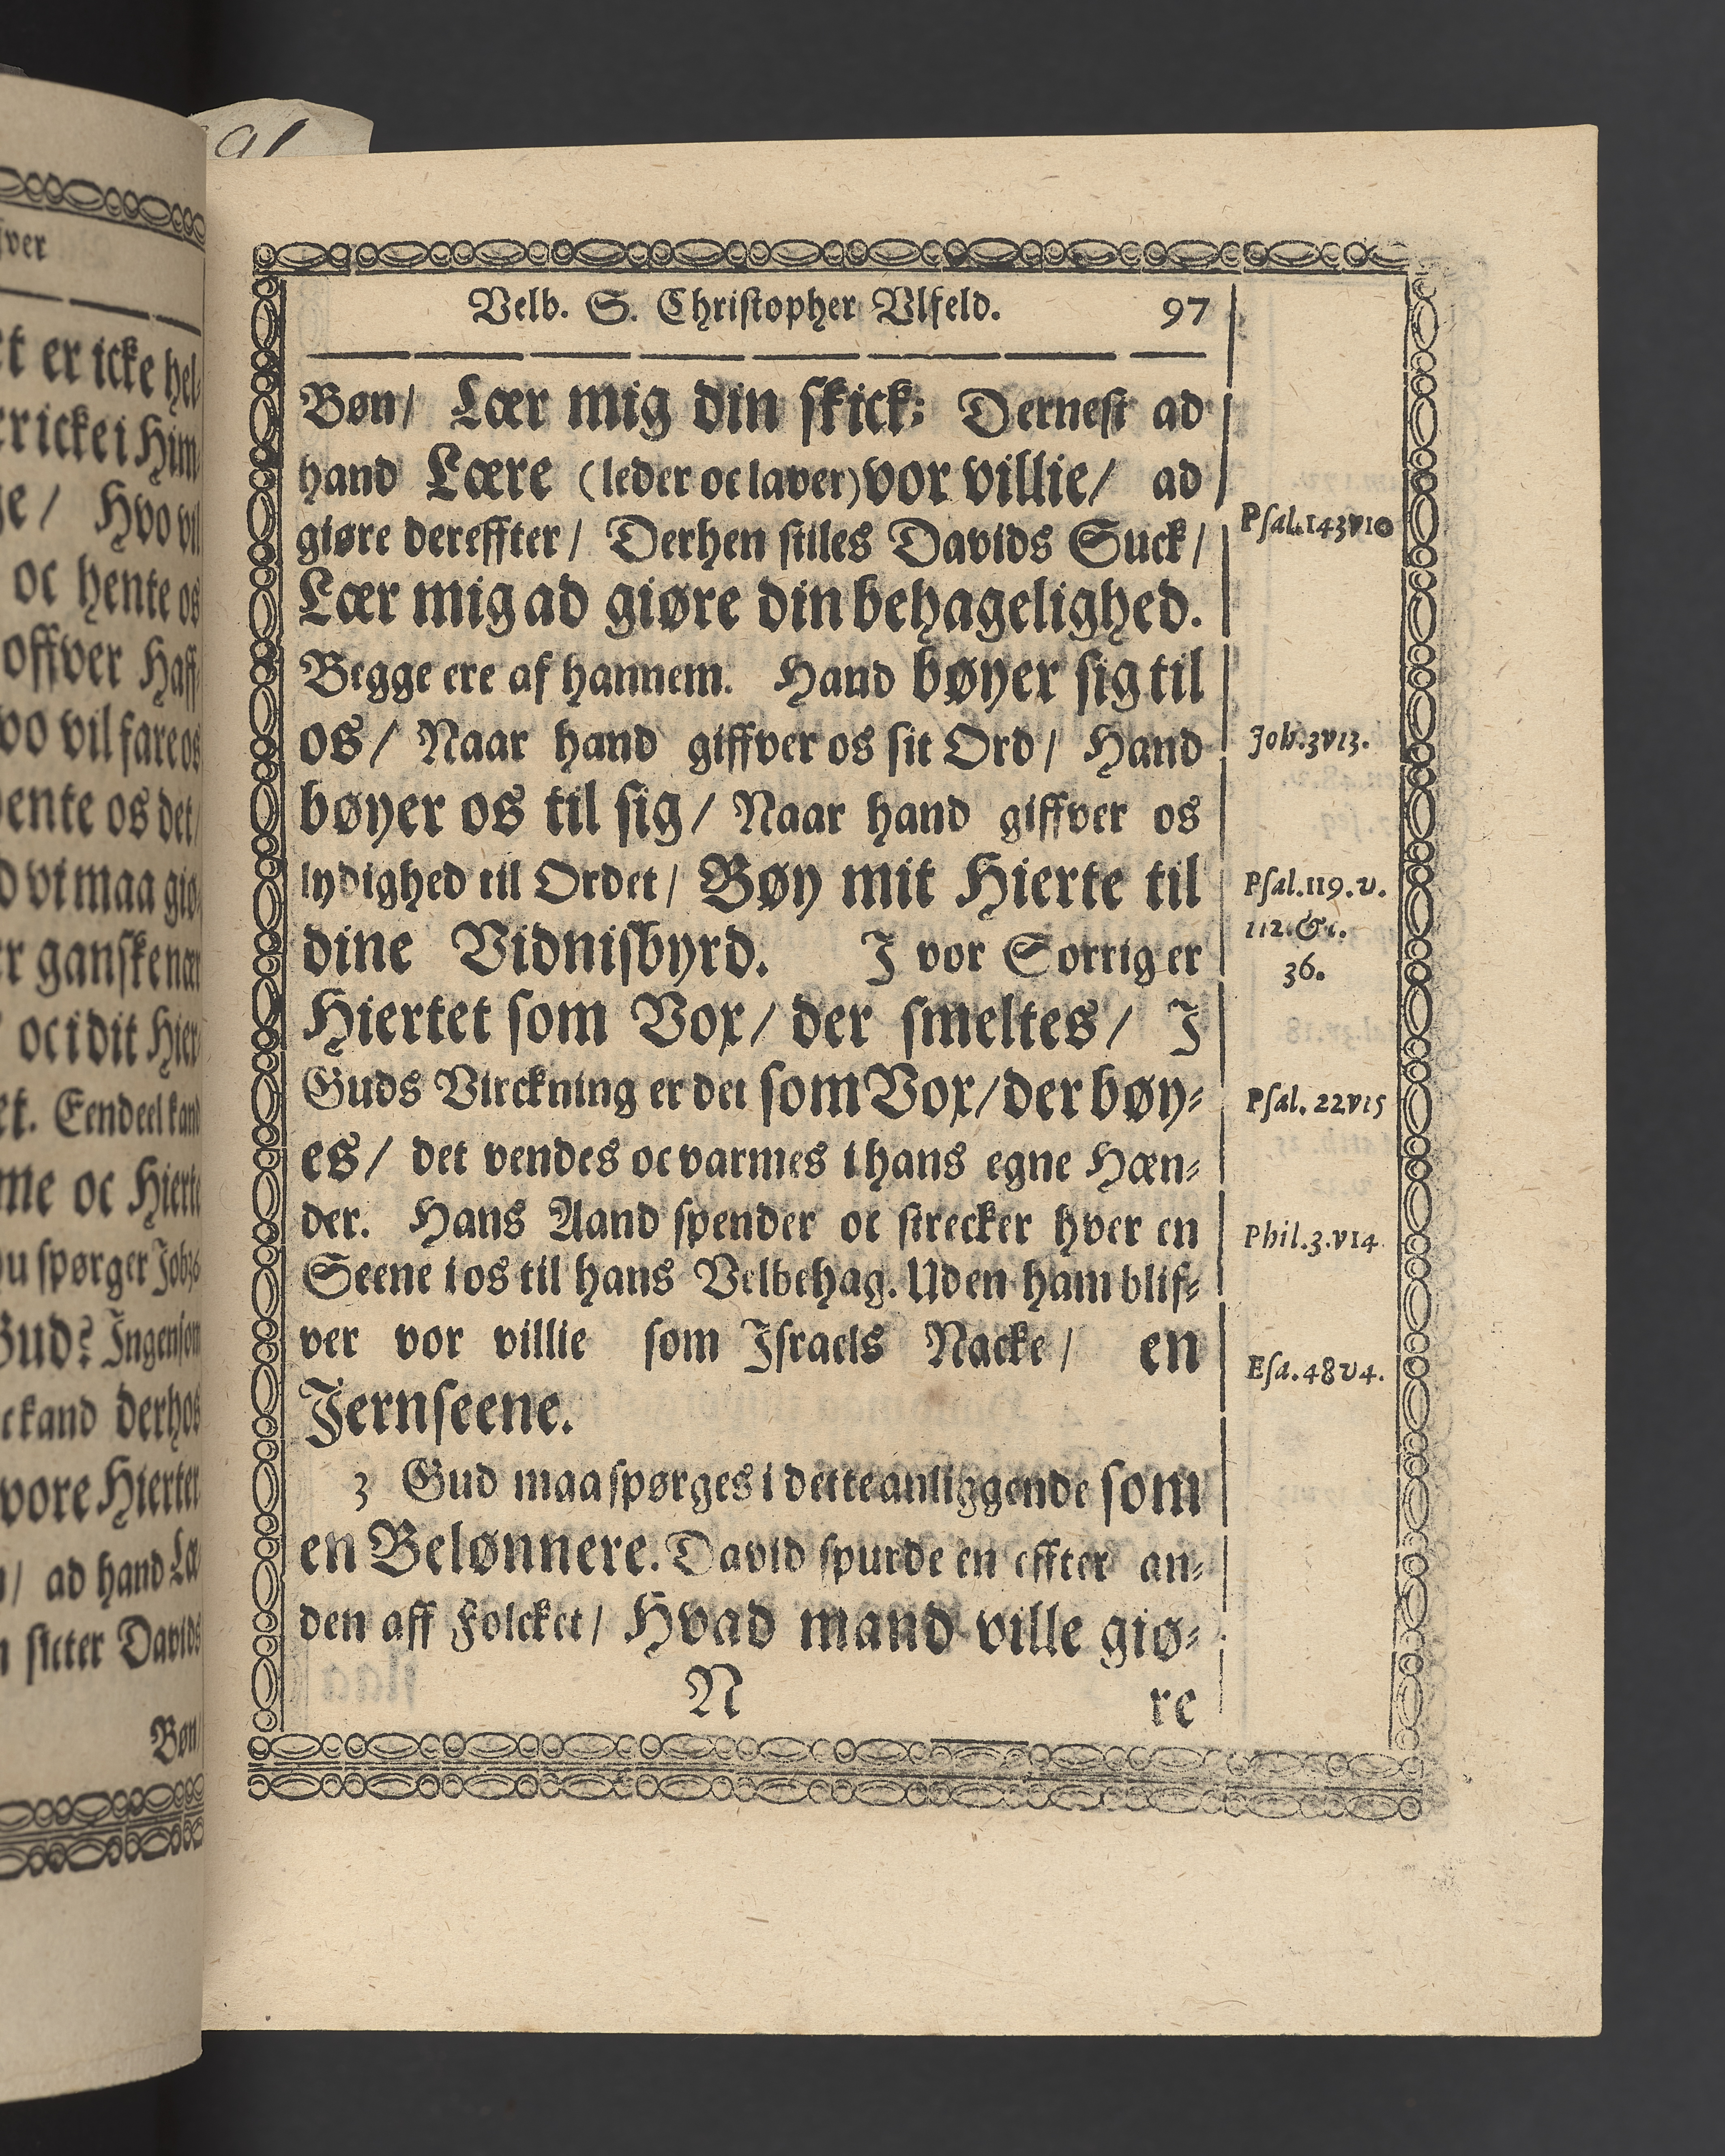 91
fver
et er icke hel⸗
er icke i Him⸗
ge / Hvo vil
oc hente os
offver Haff⸗
vo vil fare os
hente os det/
d vi maa giø⸗
er ganſke nær
oc i dit Hier⸗
et. Eendeel kand
me oc Hierte
du ſpørger Job36
Gud? Ingen ſom
c kand derhos
vore Hierter
n/ ad hand Læ⸗
n ſitter Davids
Bøn/
Velb. S. Chriſtopher Vlfeld. 97
Bøn/ Lær mig din ſkick; Derneſt ad
hand Lære (leder oc laver) vor villie/ ad
giøre dereffter/ Derhen ſtiles Davids Suck/
Lær mig ad giøre din behagelighed.
Begge ere af hannem. Hand bøyer ſig til
os/ Naar hand giffver os ſit Ord/ Hand
bøyer os til ſig/ Naar hand giffver os
lydighed til Ordet/ Bøy mit Hierte til
dine Vidnisbyrd. I vor Sorrig er
Hiertet ſom Vox/ der ſmeltes/ I
Guds Virckning er det ſom Vox/ der bøy⸗
es/ det vendes oc varmes i hans egne Hæn⸗
der. Hans Aand ſpender oc ſtrecker hver en
Seene i os til hans Velbehag. Uden ham blif⸗
ver vor villie ſom Iſraels Nacke/ en
Jernſeene.
3 Gud maa ſpørges i dette anliggende ſom
en Belønnere. David ſpurde en effter an⸗
den aff Folcket/ Hvad mand ville giø⸗
N re
Pſal.143v10
Job.3v13.
Pſal.119.v.
112.&c.
36.
Pſal. 22v15
Phil.3.v14
Eſa.48v4.